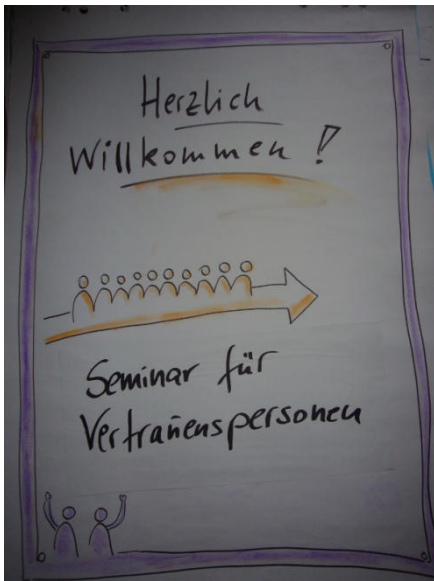 Herzlich
Willkommen !
Seminar für
Vertrauenspersonen